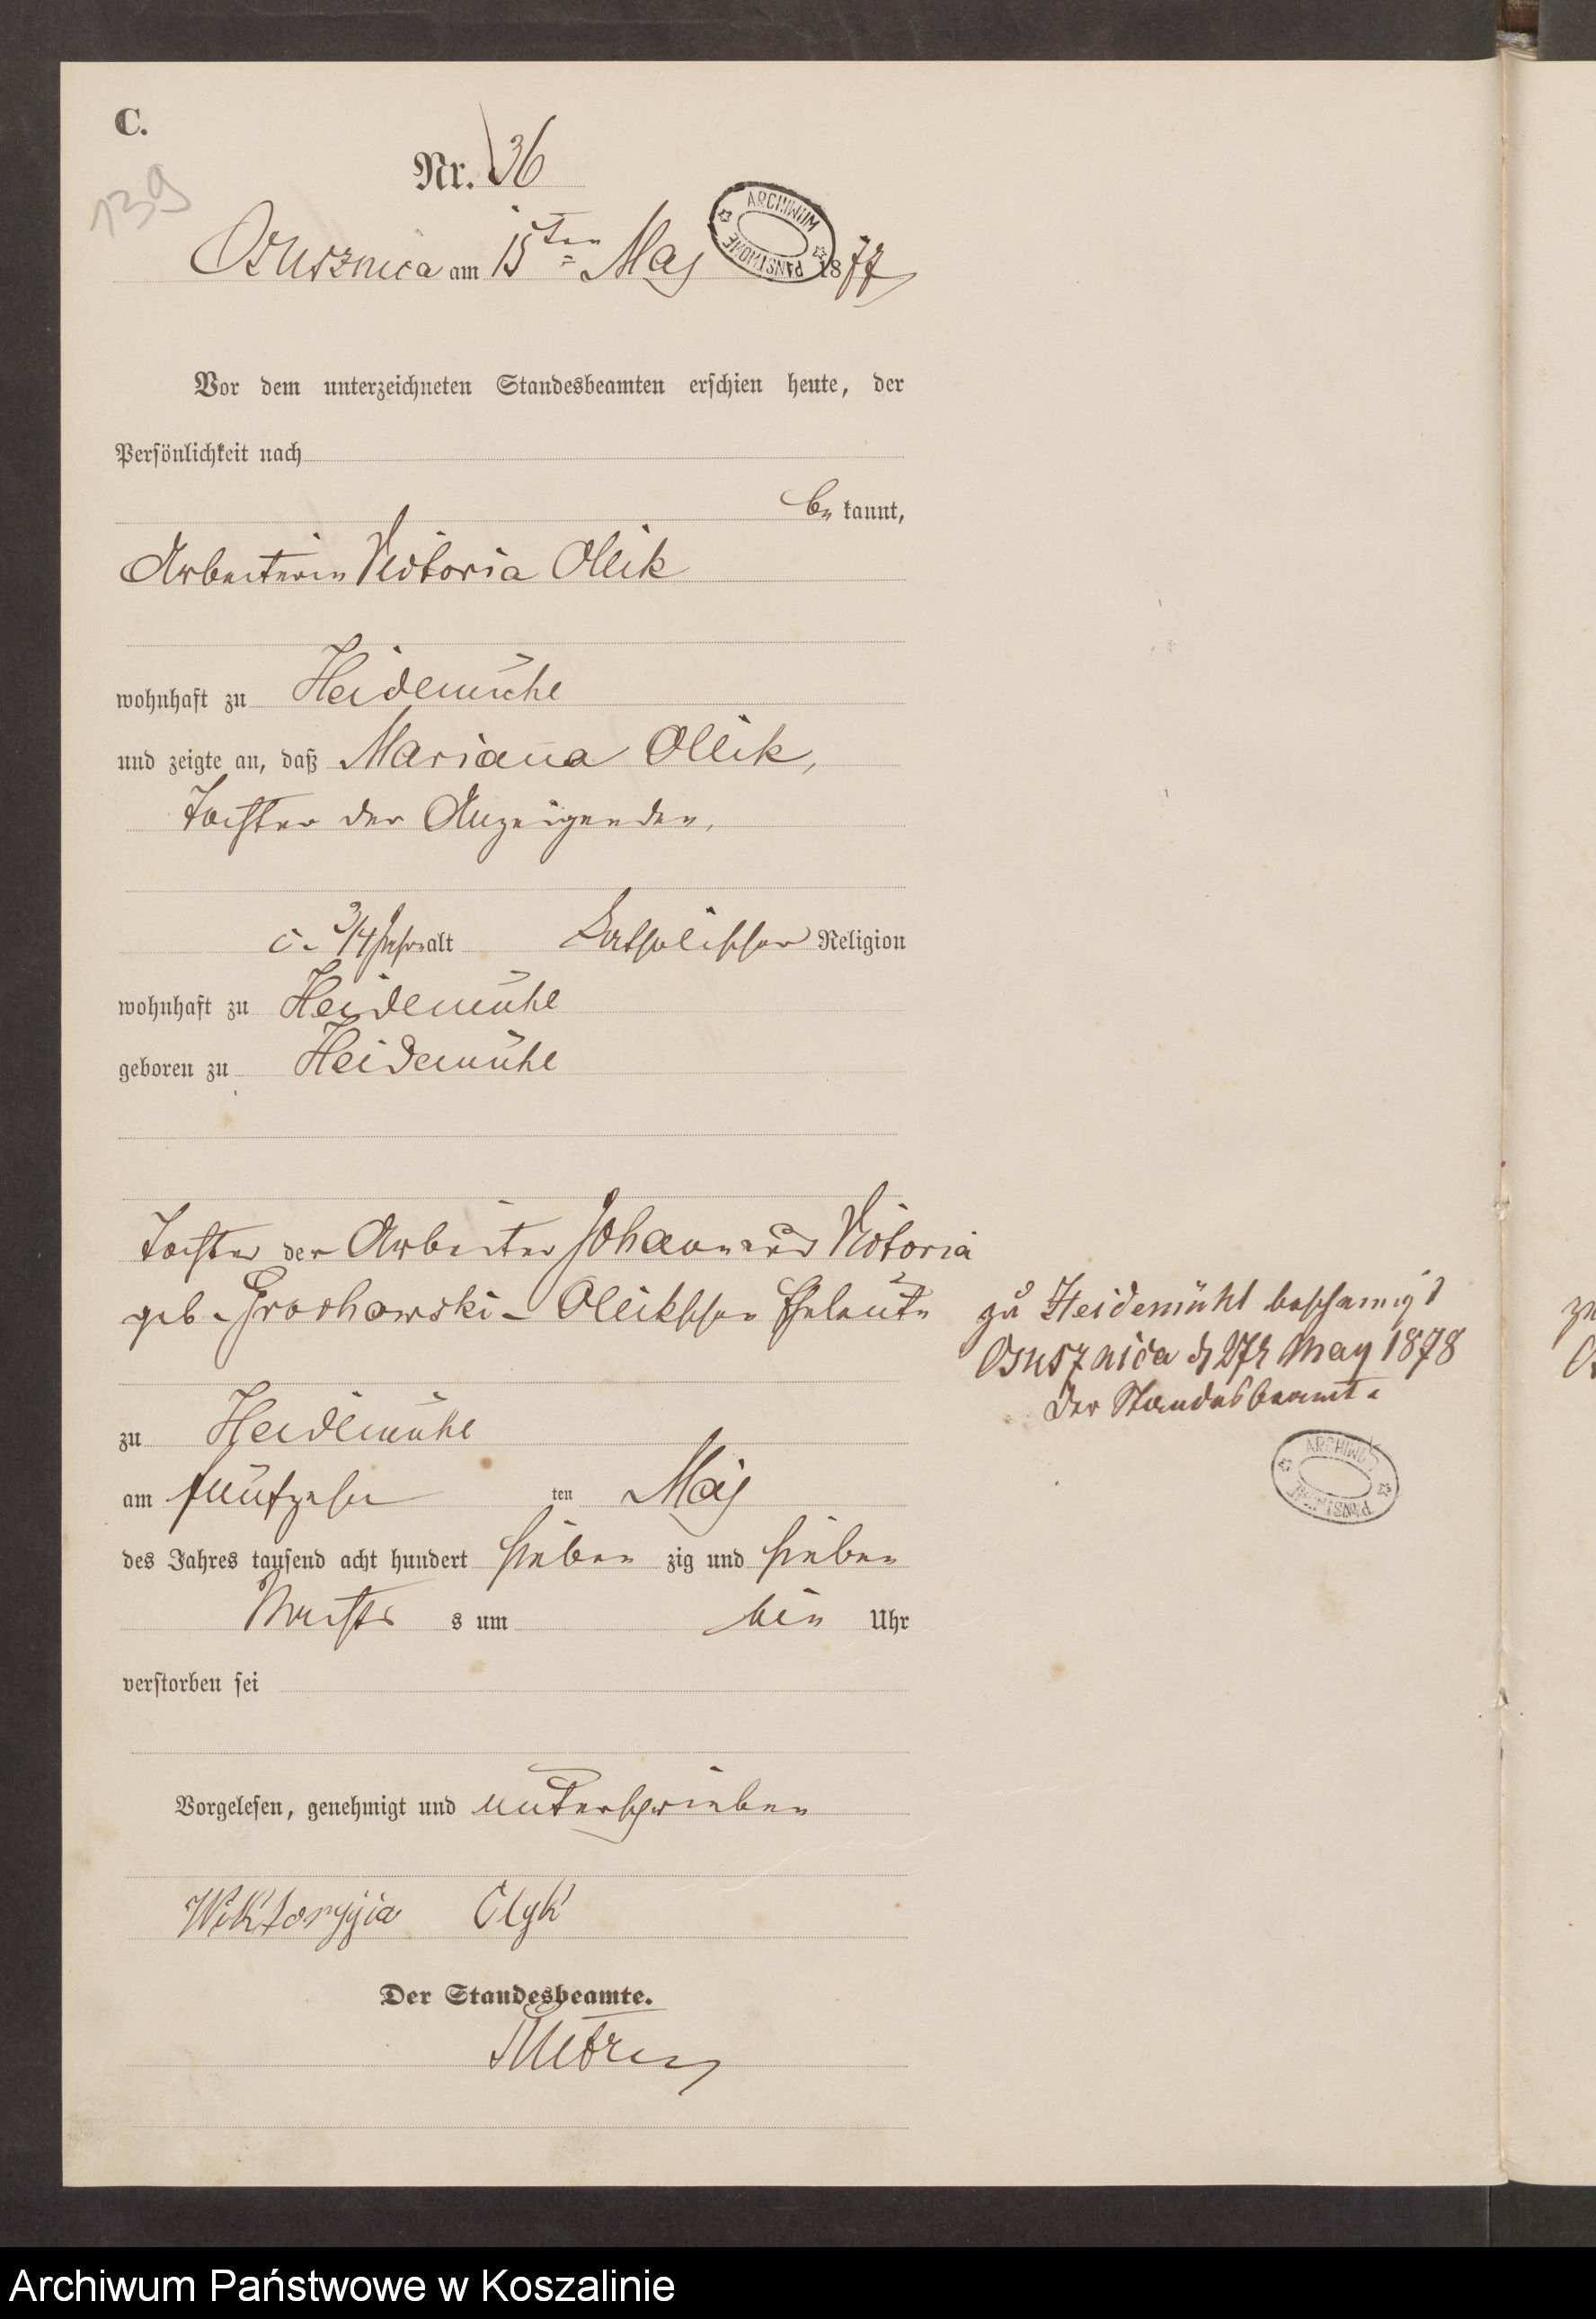 C.
Nr. 36
139
Osusznica am 15ten May 1877
ARCHIWUM PAŃSTWOWE
Vor dem unterzeichneten Standesbeamten erschien heute, der
Persönlichkeit nach
be kannt,
Arbeiterin Victoria Ollik
wohnhaft zu Heidemühl
und zeigte an, daß Mariana Ollik,
Tochter der Anzeigenden,
3/4 Jahr alt Katholischer Religion
wohnhaft zu Heidemühl
geboren zu Heidemühl
Tochter der Arbeiter Johann und Victoria
geb. Grochowski - Ollikschen Eheleute
zu Heidemühl
am fünfzehn ten May
des Jahres tausend acht hundert sieben zig und sieben
Nachts s um Uhr
verstorben sei
Vorgelesen, genehmigt und unterschrieben
Wiktoryjia Olyk
Der Standesbeamte.
zu Heidemühl
Osusznica d 27t May 1878
Der Standesbeamte
ARCHIWUM PAŃSTWOWE
Archiwum Państwowe w Koszalinie